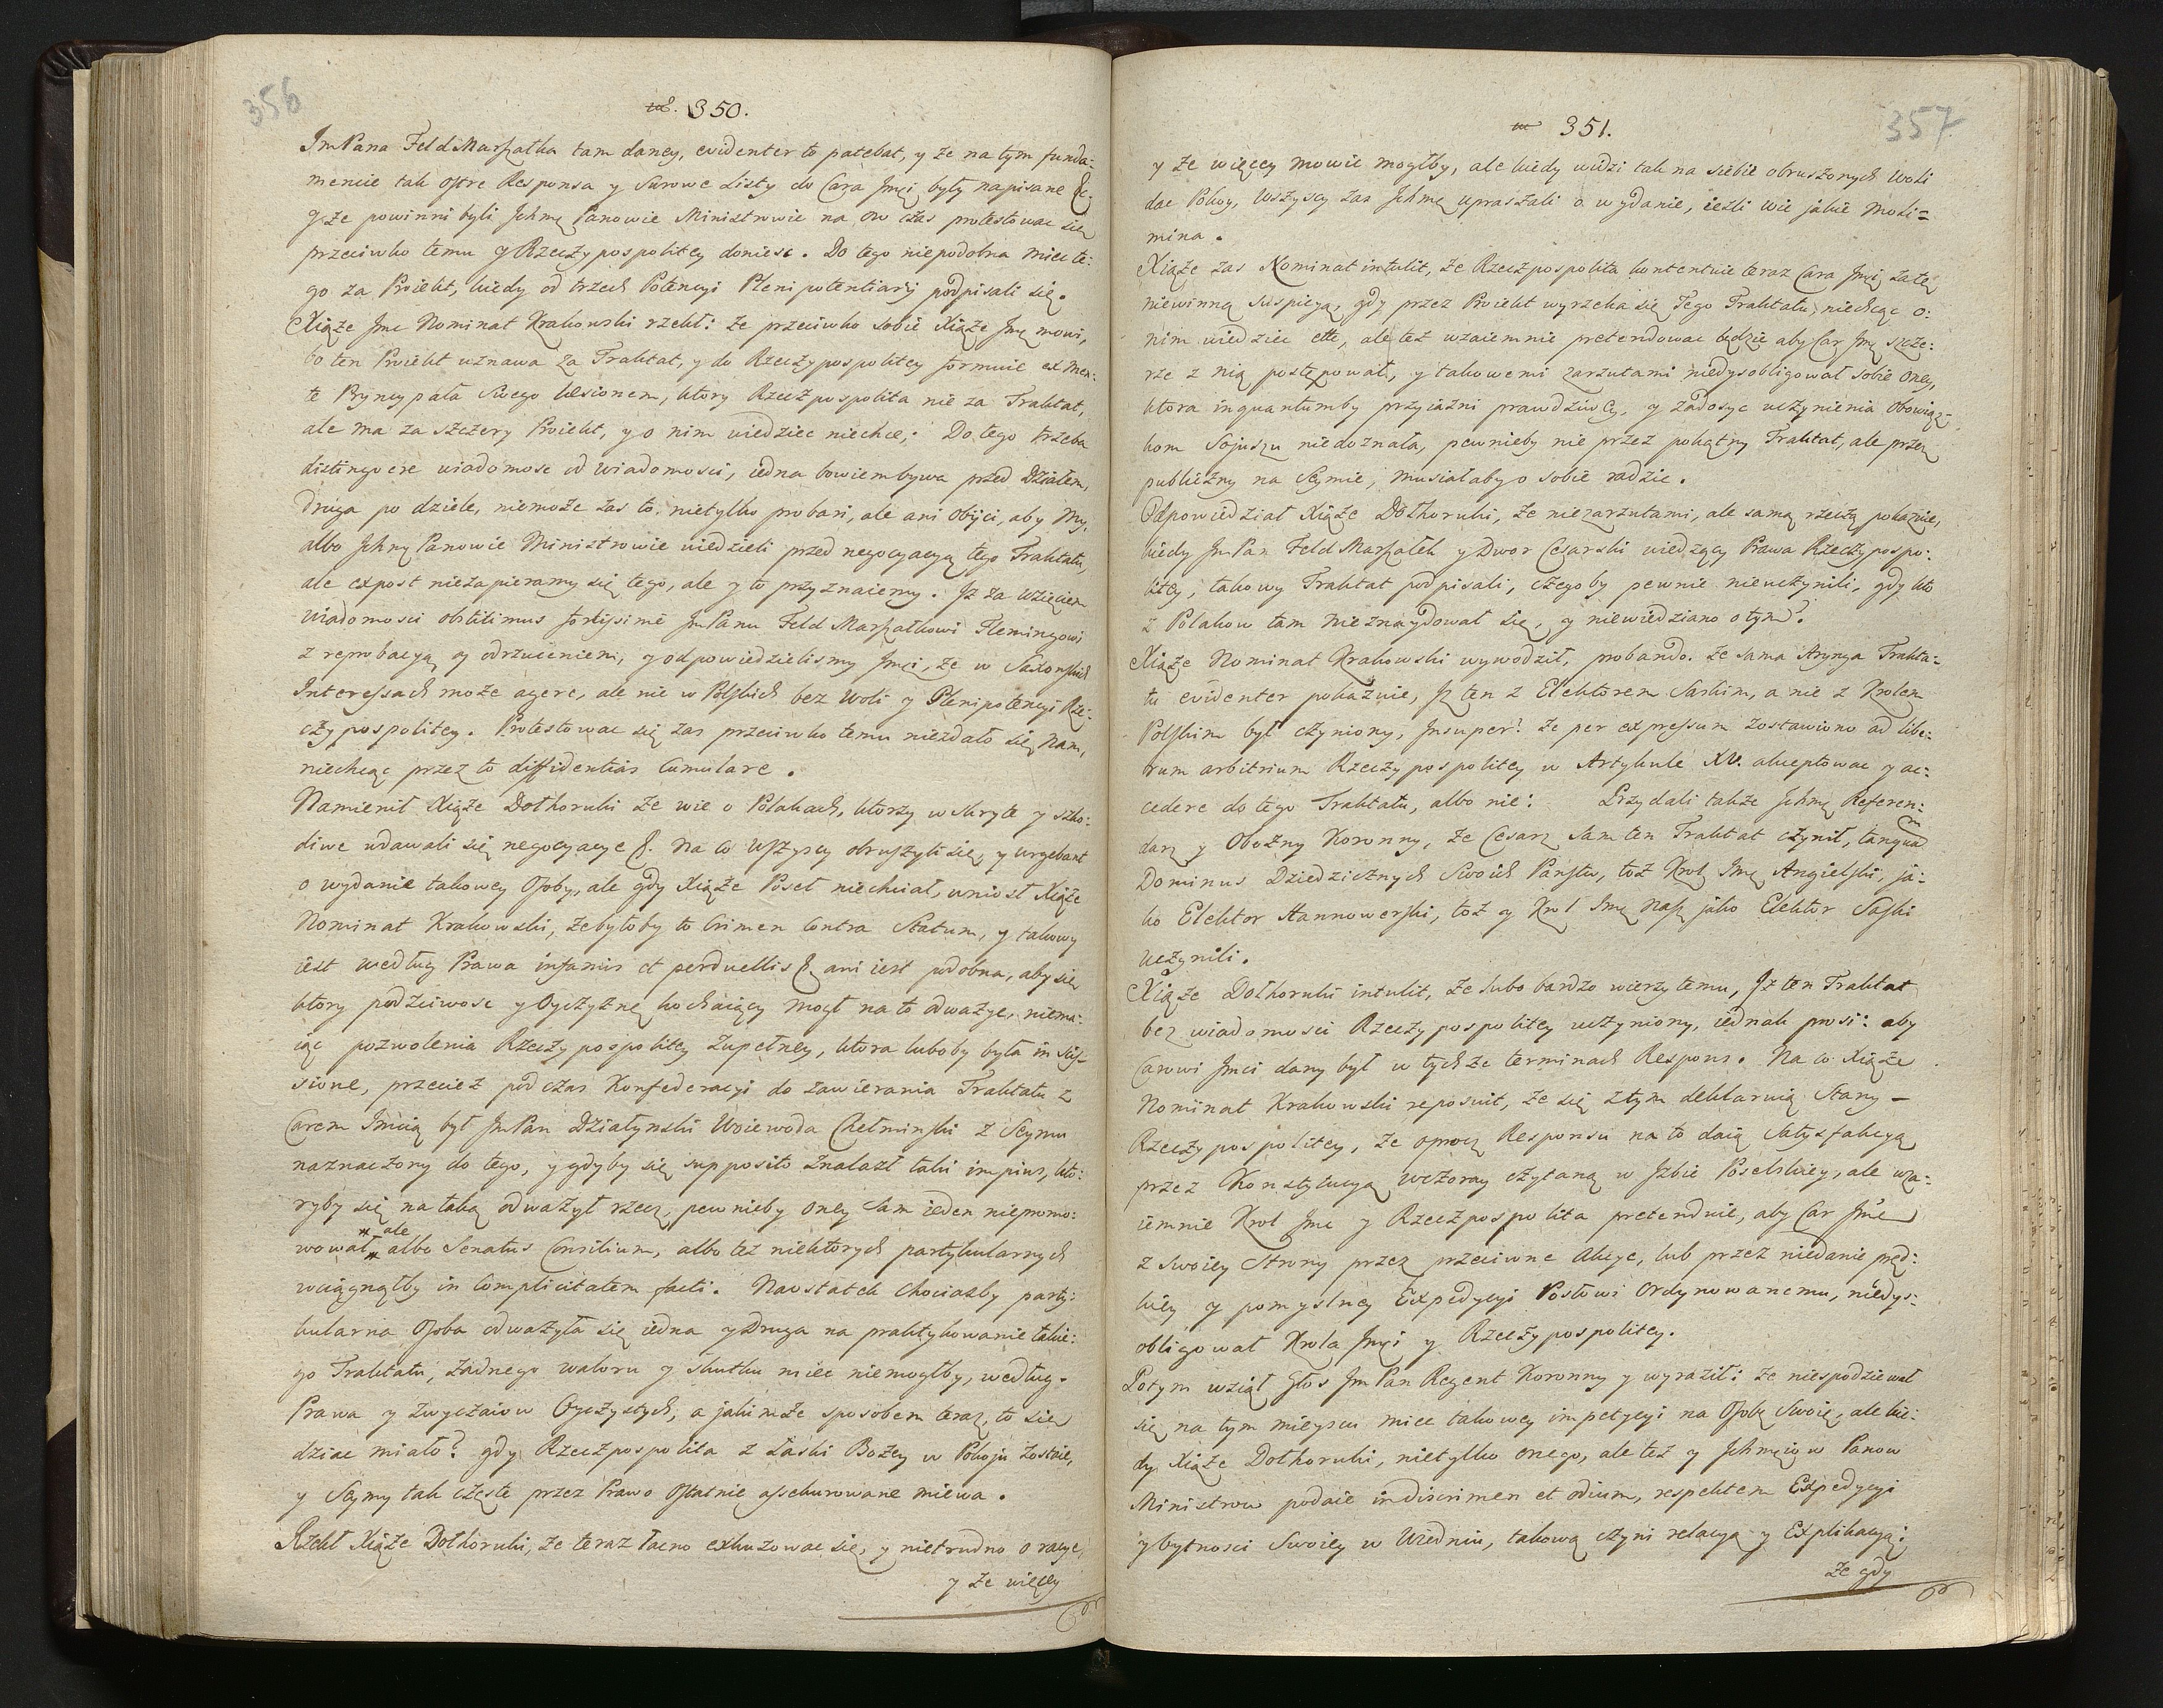 356
350.
JmPana FeldMarszałka tam daney, evidenter to patebat, y że na tym funda:
mencie tak ostre Responsa y Surowe Listy do Cara Jmći były napisane &c.
y że powinni byli Jchmę Panowie Ministrowie na on czas protestowac się
przeciwko temu y Rzeczypospolitey doniesc. Do tego niepodobna miec te:
go za Proiekt, kiedy od trzech Potencyi Plenipotentiarij podpisali się.
Xiąże Jmc Nominat Krakowski rzekł: że przeciwko sobie Xiąże Jmę mowi,
bo ten Proiekt uznawa za Traktat, y do Rzeczypospolitey formuie ex men:
te Pryncypała Swego laesionem, ktory Rzeczpospolita nie za Traktat,
ale ma za szczery Proiekt, y o nim wiedziec niechce; Do tego trzeba
distingvere wiadomosc od wiadomosci, iedna bowiem bywa przed Dziełem,
druga po dziele, niemoże zas to nietylko probari, ale ani obijci, aby My,
albo Jchmę Panowie Ministrowie wiedzieli przed negocyacyą tego Traktatu,
ale ex post niezapieramy się tego, ale y to przyznaiemy. Jż za wzięciem
wiadomosci obstitimus fortissime JmPanu Feld Marszałkowi Flemingowi
z reprobacyą y odrzuceniem, y odpowiedzielismy Jmći, że w Saxonskich
Interessach może agere, ale nie w Polskich bez Woli y Plenipotencyi Rze:
czypospolitey. Protestowac się zas przeciwko temu niezdało się Nam,
niechcąc przez to diffidentias Cumulare.
Namienił Xiąże Dołhoruki że wie o Polakach, ktorzy w skryte y szko:
dliwe wdawali się negocyacye &. Na co Wszyscy obruszyli się, y urgebant
o wydanie takowey Osoby, ale gdy Xiąże Poseł niechciał, wniosł Xiąże
Nominat Krakowski, że byłoby to Crimen Contra Statum, y takowy
iest według Prawa infamis et perduellis &, ani iest podobna, aby się
ktory podściwosc y Oyczyznę kochaiący mogł na to odważyc, niema:
iąc pozwolenia Rzeczypospolitey zupełney, ktora luboby była in Scis-
sione, przeciez podczas Konfederacyi do zawierania Traktatu z
Carem Jmcią był JmPan Działynski Woiewoda Chełminski z Seymu
naznaczony do tego, y gdyby się supposito znalazł taki impius, kto:
ryby się na taką odważył rzecz, pewnieby oney sam ieden niepromo:
* ale
wował * albo Senatus Consilium, albo też niektorych partykularnych
wciągnąłby in Complicitatem facti. Naostatek chociażby party:
kularna Osoba odważyła się iedna y Druga na praktykowanie takie:
go Traktatu, żadnego waloru y skutku miec niemogłby, według
Prawa y zwyczaiow Oyczystych, a jakimże sposobem teraz, to się
dziac miało? gdy Rzeczpospolita z Łaski Bożey w Pokoju zostaie,
y Seymy tak częste przez Prawo Ostatnie assekurowane miewa.
Rzekł Xiąże Dołhoruki, że teraz łacno exkuzowac się, y nietrudno o racye,
y że więcey

357
351.
y że więcey mowic mogłby, ale kiedy widzi tak na siebie obruszonych woli
dac Pokoy, Wszyscy zas Jchmę upraszali o wydanie, ieżli wie jakie Moli=
mina.
Xiąże zas Nominat intulit, że Rzeczpospolita kontentuie teraz Cara Jmći za tę
niewinną suspicyą, gdy przez Proiekt wyrzeka się Tego Traktatu, niechcąc o:
nim wiedziec ette, ale też wzaiemnie pretendowac będzie aby Car Jmę szcze:
rze z nią postępował, y takowemi zarzutami niedysobligował sobie oney,
ktora inquantumby przyiaźni prawdziwey, y zadosyc uczynienia obowiąz-
kom Sojuszu niedoznała, pewnieby nie przez pokątny Traktat, ale przez
publiczny na Seymie, musiałaby o sobie radzic.
Odpowiedział Xiąże Dołhoruki, że niezarzutami, ale samą rzeczą pokazuie,
kiedy JmPan FeldMarszałek y Dwor Cesarski wiedzący Prawa Rzeczypospo:
litey, takowy Traktat podpisali, czegoby pewnie nieuczynili, gdy kto
z Polakow tam nieznaydował się, y niewiedziano o tym?
Xiąże Nominat Krakowski wywodził, probando. że sama Arynga Trakta-
tu evidenter pokazuie, Jż ten z Elektorem Saskim, a nie z Krolem
Polskim był czyniony, Insuper! że per expressum zostawiono ad libe:
rum arbitrium Rzeczypospolitey w Artykule XV. akceptowac y ac:
cedere do tego Traktatu, albo nie: Przydali także Jchmę Referen:
darz y Oboźny Koronny, że Cesarz sam ten Traktat czynił, tanquam
Dominus Dziedzicznych Swoich Panstw, toż Krol Jmę Angielski, ja-
ko Elektor Hannowerski, toż y Krol Jmę Nasz jako Elektor Saski
uczynili.
Xiąże Dołhoruki intulit, że lubo bardzo wierzy temu, Jż ten Traktat
bez wiadomosci Rzeczypospolitey uczyniony, iednak prosi: aby
Carowi Jmći dany był w tychże terminach Respons. Na co Xiąże
Nominat Krakowski reposuit, że się z tym deklaruią Stany -
Rzeczypospolitey, że oprocz Responsu na to daią Satysfakcyą
przez Konstytucyą wczoray czytaną w Jzbie Poselskiey, ale wza-
iemnie Krol Jmc y Rzeczpospolita pretenduie, aby Car Jmć
z swoiey Strony przez przeciwne Akcye, lub przez niedanie pręd:
kiey y pomyslney Expedycyi Posłowi Ordynowanemu, niedys:
obligował Krola Jmći y Rzeczypospolitey.
Potym wziął głos JmPan Regent Koronny y wyraził: że niespodziewał
się na tym mieyscu miec takowey impetycyi na Osobę Swoię, ale kie:
dy Xiąże Dołhoruki, nietylko onego, ale też y Jchmęciow Panow
Ministrow podaie in discrimen et odium, respektem Expedycyi
y bytnosci Swoiey w Wiedniu, takową czyni relacyą y Explikacyą;
że gdy